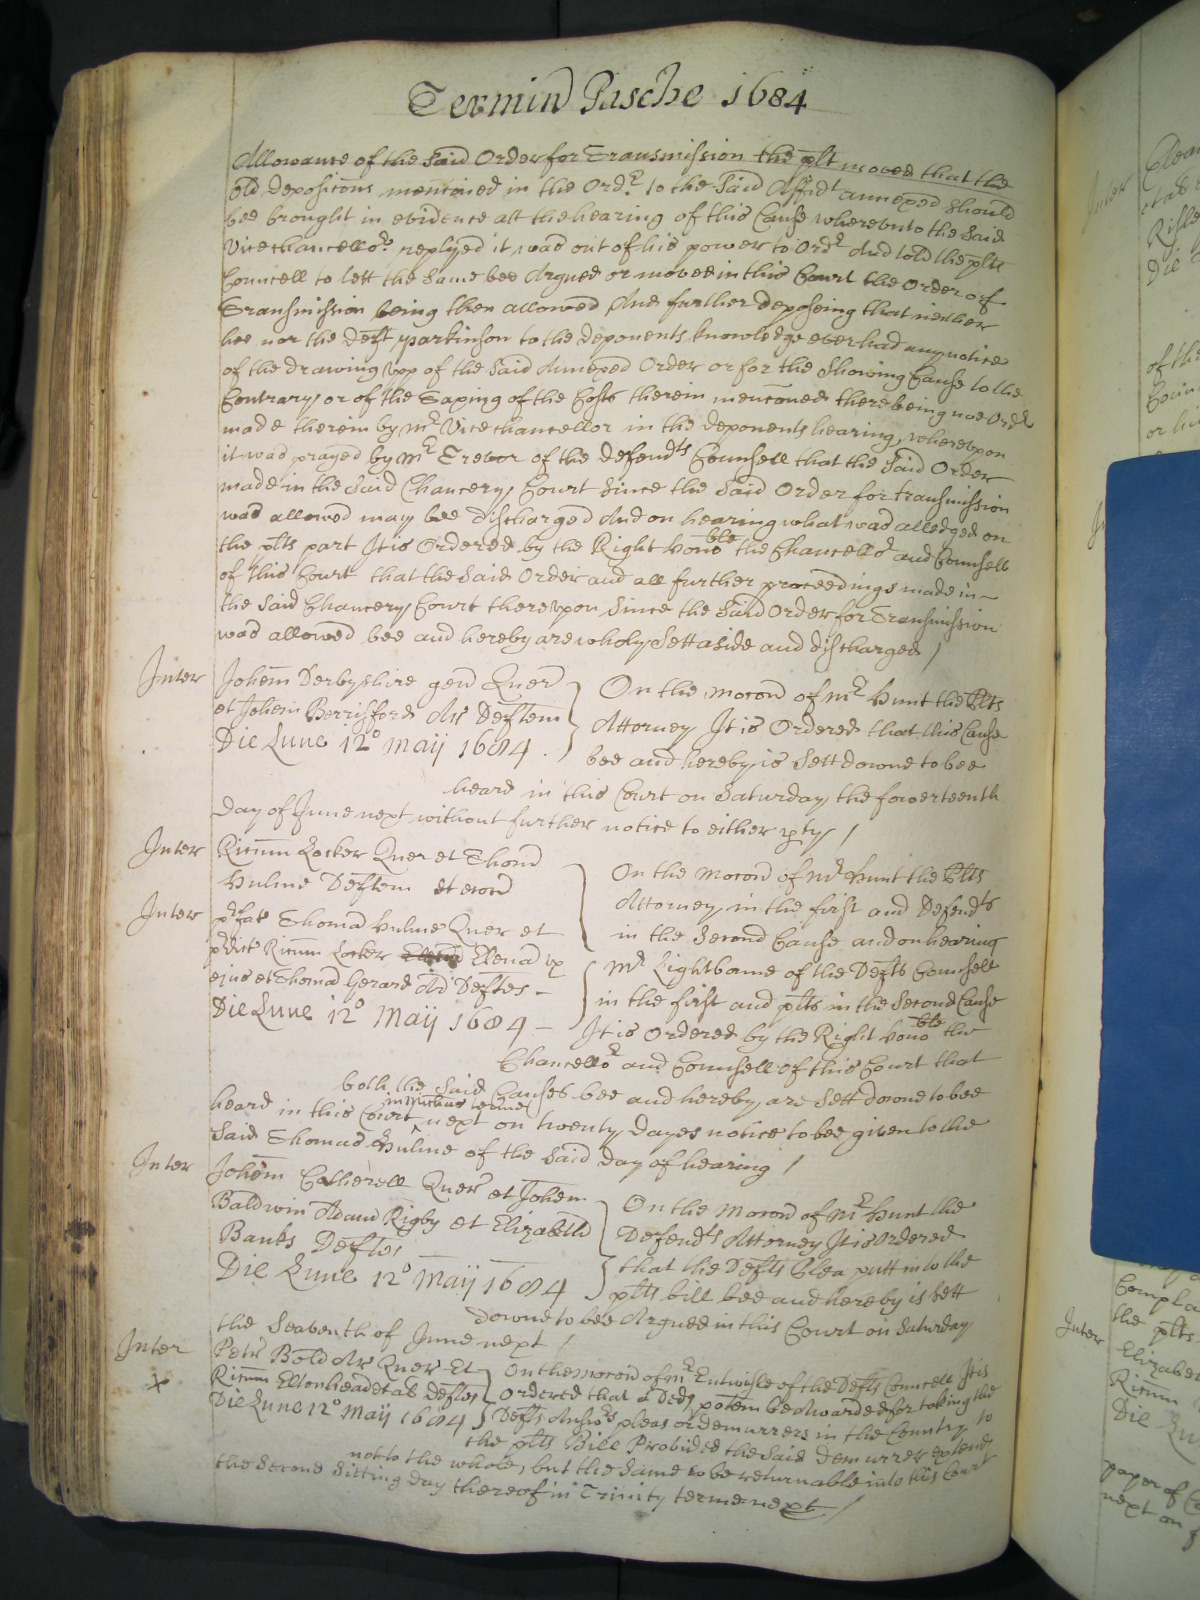 Termino Pasche 1684
Allowance of the said Order for Transmission the plt moved that the
old deposicons menconed in the Ordr. to the said Affidt annexed should
bee brought in evidence att the hearing of this Cause wherevnto the said
Vicechancellor replyed it was out of his power to Ordr And told the plts
Councell to lett the same bee Argued or moved in this Court the Order of
Transmission being then allowed And further deposeing that neither
hee nor the deft Parkinson to the deponents knowledge ever had any notice
of the drawing vpp of the said Annexed Order or for the Showing Cause to the
Contrary or of the Taxing of the Costs therein menconed there being noe Ordr
made therein by Mr Vicechancellor in the deponents hearing, wherevpon
it was prayed by Mr Trevor of the defendts Counsell that the said Order
made in the said Chancery Court since the said Order for transmission
was allowed may bee discharged And on hearing what was alledged on
the plts part It is Ordered by the Right Honoble the Chancellor and Counsell
of this Court that the said Order and all further proceedings made in
the said Chancery Court therevpon since the said Order for Transmission
was allowed bee and hereby are wholy Sett aside and discharged /
Inter Johem Derbyshire gen Quer
et Johem Berrisford Ar Deftem
Die Lune 12o Maij 1684.
On the mocon of Mr Hunt the Plts
Attorney It is Ordered that this Cause
bee and hereby is Sett downe to bee
heard in this Court on Saturday the fowerteenth
day of June next without further notice to either pty /
Inter Ricum Locker Quer et Thom
Hulme Deftem et econ
Inter pfat Thomam Hulme Quer et
pdict Ricum Locker Elena vx
ejus et Thomam Gerard Ad Deftes -
Die Lune 12o Maij 1684 -
On the mocon of Mr Hunt the Plts
Attorney in the first and Defendts
in the second Cause and on hearing
Mr Lightbowne of the Defts Counsell
in the first and plts in the Second Cause
It is Ordered by the Right Honoble the
Chancellor and Counsell of this Court that
both the said Causes bee and hereby are Sett downe to bee
heard in this Court in Michas terme next on twenty dayes notice to bee given to the
said Thomas Hulme of the said day of hearing /
Inter Johem Catherell Quer et Johem
Baldwin Adam Rigby et Elizabeth
Banks Deftes
Die Lune 12o Maij 1684
On the Mocon of Mr Hunt the
Defendts Attorney It is Ordered
that the Defts Plea putt in to the
plts bill bee and hereby is Sett
downe to bee Argued in this Court on Saturday
the Seaventh of June next /
Inter Petr Bold Ar Quer Et
Ricum Eltonhead et al Deftes
Die Lune 12o Maij 1684
On the mocon of Mr Entwisle of the Defts Councell It is
Ordered that a Ded potem be Awarded for taking the
Defts Answrs pleas or demurrers in the Country to
the plts Bill Provided the said demurrer extend
not to the whole, but the same to be returnable into this Court
the Second Sitting day thereof in Trinity terme next /